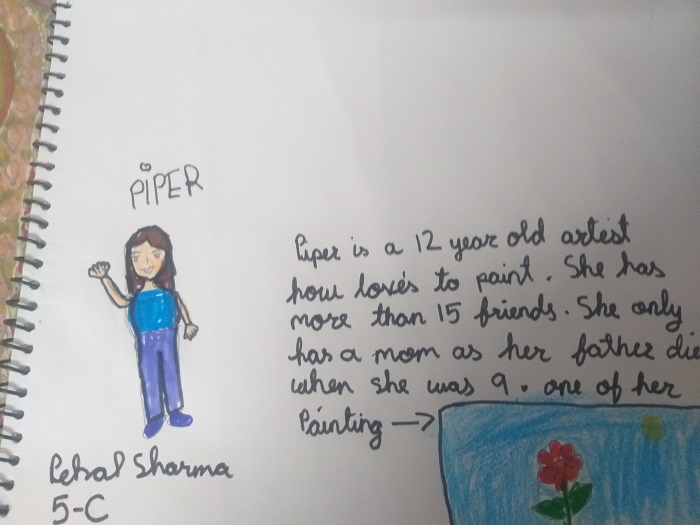 PiPER
Piper is a 12 year old artest
how love's to paint. She has
more than 15 friends. She only
has a mom as her father die
when she was 9. one of her
Painting →
Sharma
5-C